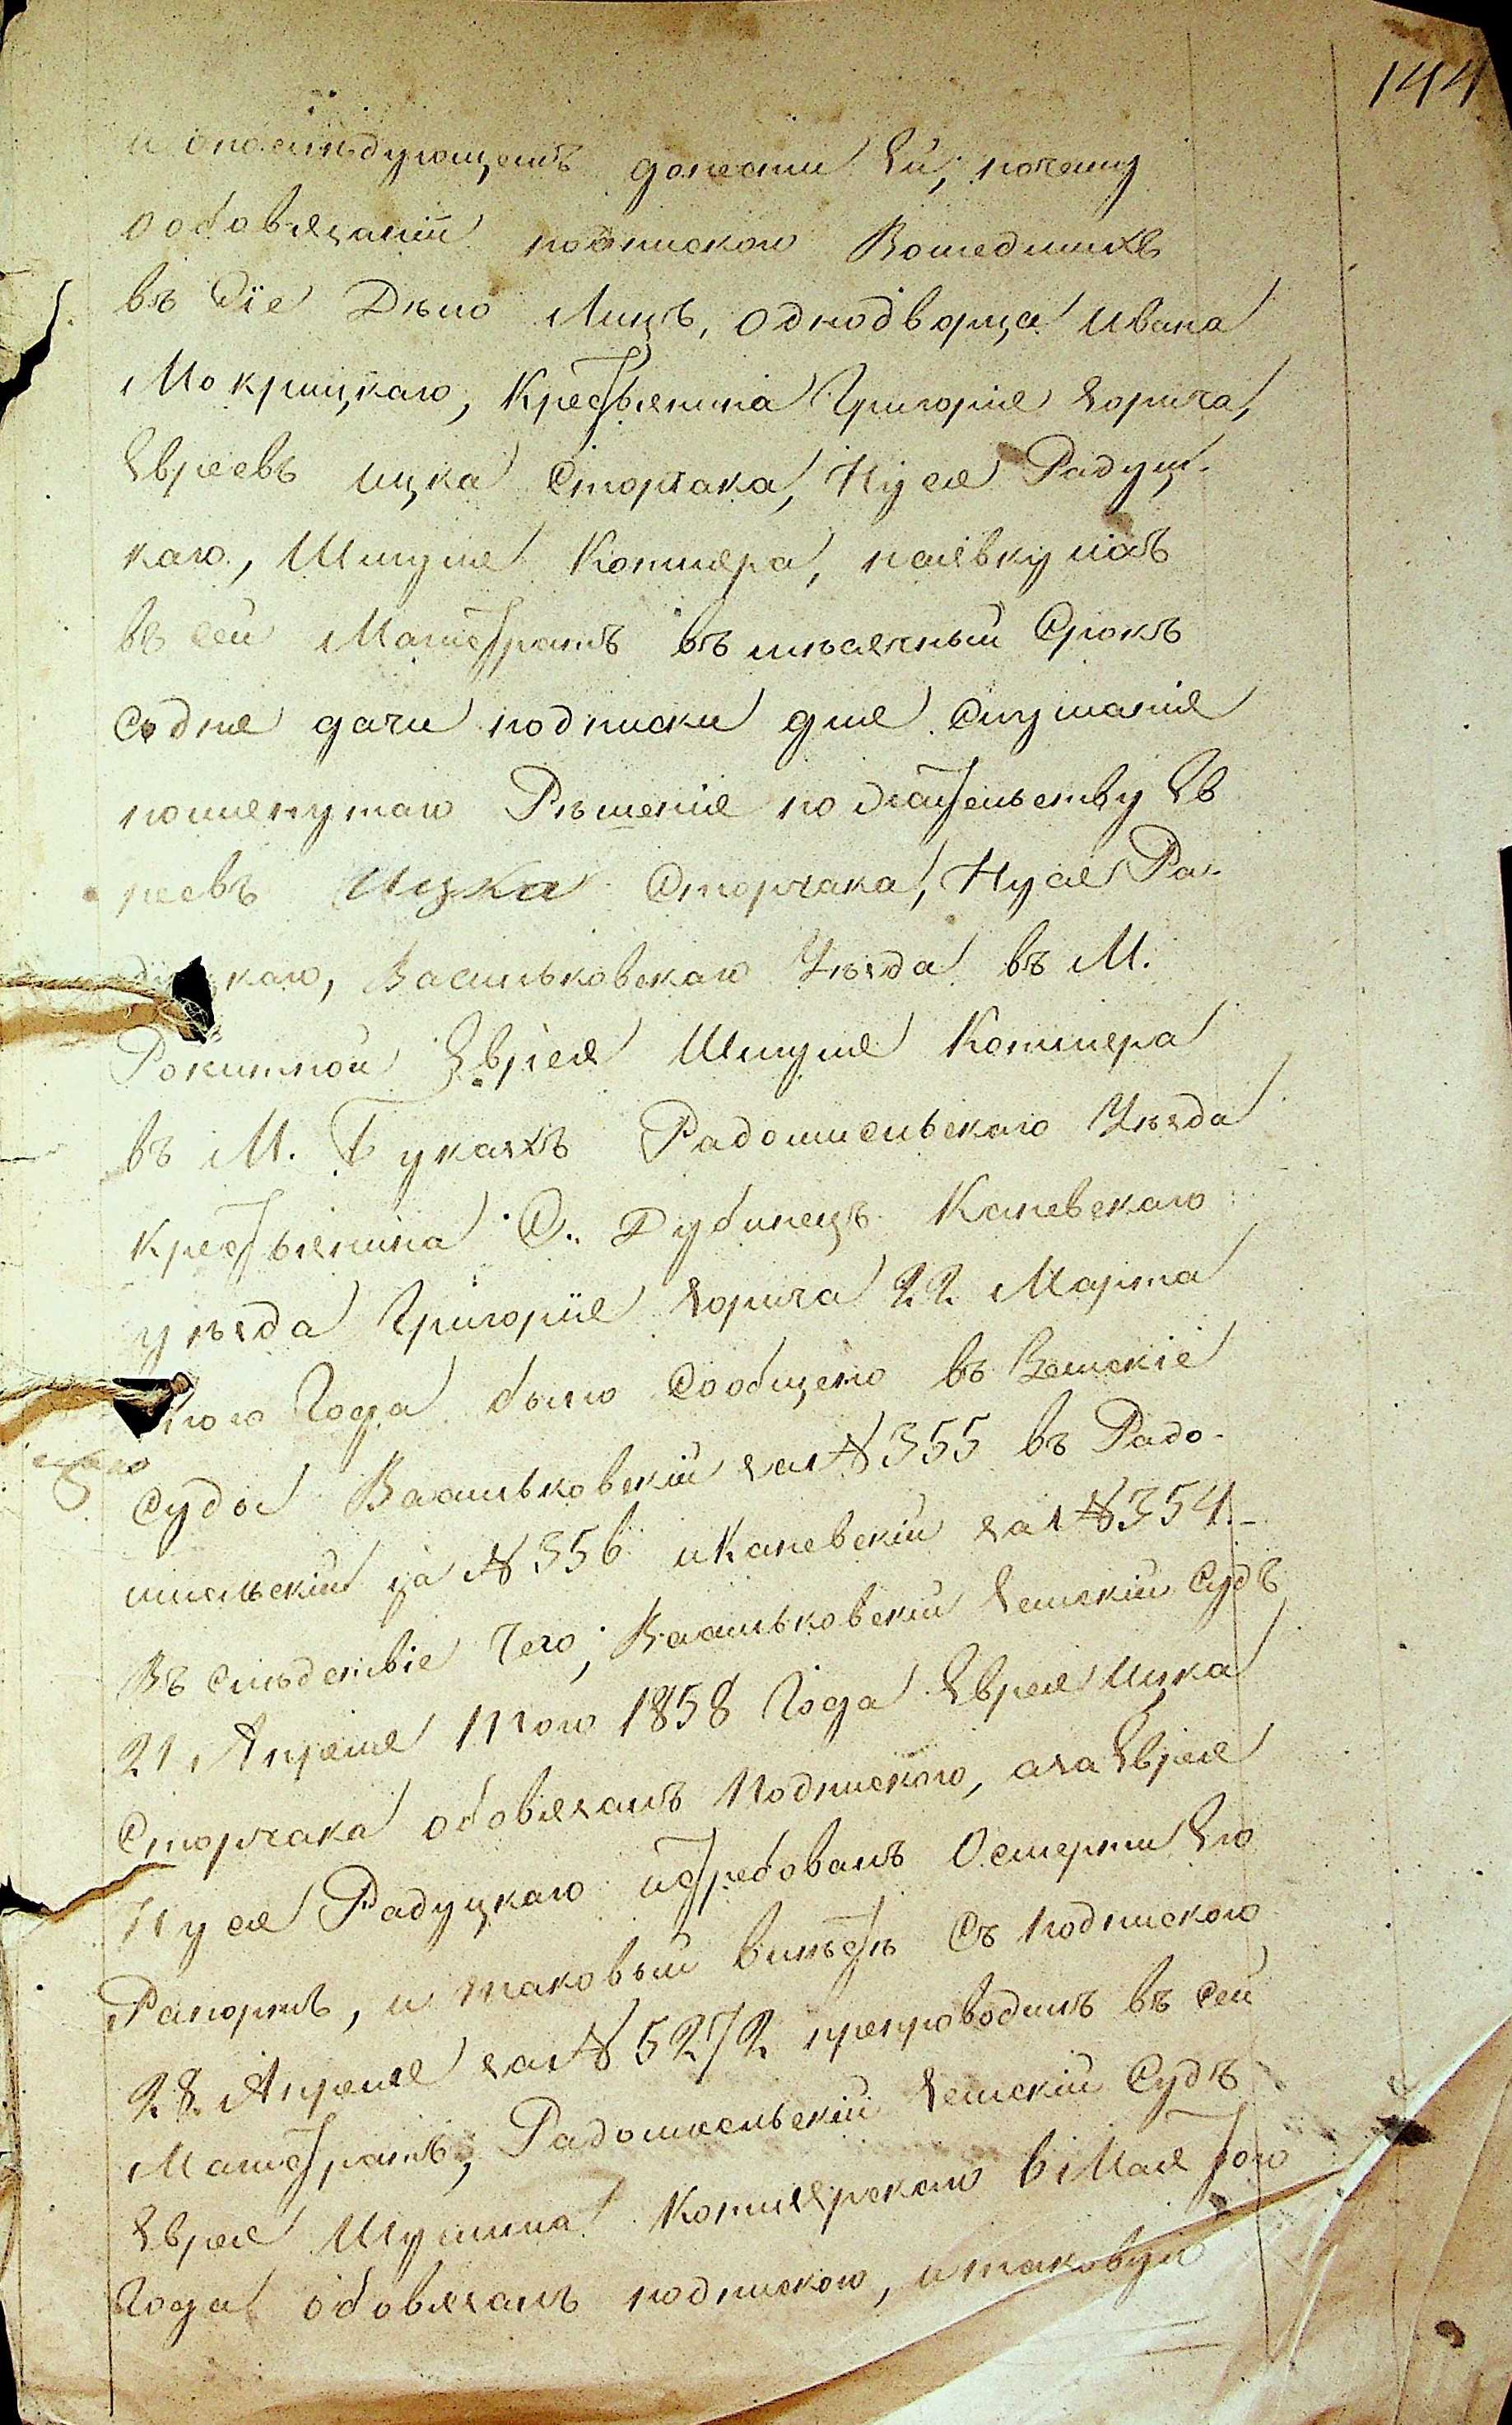 144
и опослѣдующемъ донести Ей; почему
о обовязаніи подпискою Вошедшихъ
въ Сіе Дѣло Лицъ, однодворца Ивана
Мокрицкаго, Крестьянина Григорія Зорича,
Евреевъ Ицка Сторчака, Нуся Радуц-
каго, Шмуля Котляра, наявку ихъ
въ сей Магистратъ въ мѣсячный Срокъ
Содня дачи подписки для Слушанія
помянутаго Рѣшенія по жительству Ев
реевъ Ицка Сторчака, Нуся Ра-
дуцкаго, Васильковскаго Уѣзда въ М.
Рокитной Еврея Шмуля Котляра
въ М. Букахъ Радомысльскаго Уѣзда
Крестьянина С. Дубинецъ Каневскаго
уѣзда Григорія Зорича 22 Марта
того Года было Сообщено въ Земскіе
Суды Васильковскій за № 355 въ Радо-
мысльскій за № 356 и Каневскій за № 354.-
Въ слѣдствіе Чего; Васильковскій Земскій Судъ
21 Апрѣля того 1858 Года Еврея Ицка
Сторчака обовязалъ Подпискою, а за Еврея
Нуся Радуцкаго истребовалъ О смерти Его
Рапортъ, и таковый вмѣстѣ Съ подпискою
28 Апрѣля за № 5272 препроводилъ въ сей
Магистратъ; Радомысльскій Земскій Судъ
Еврея Шулима Котлярскаго 6 Мая того
Года обовязалъ подпискою, и таковую